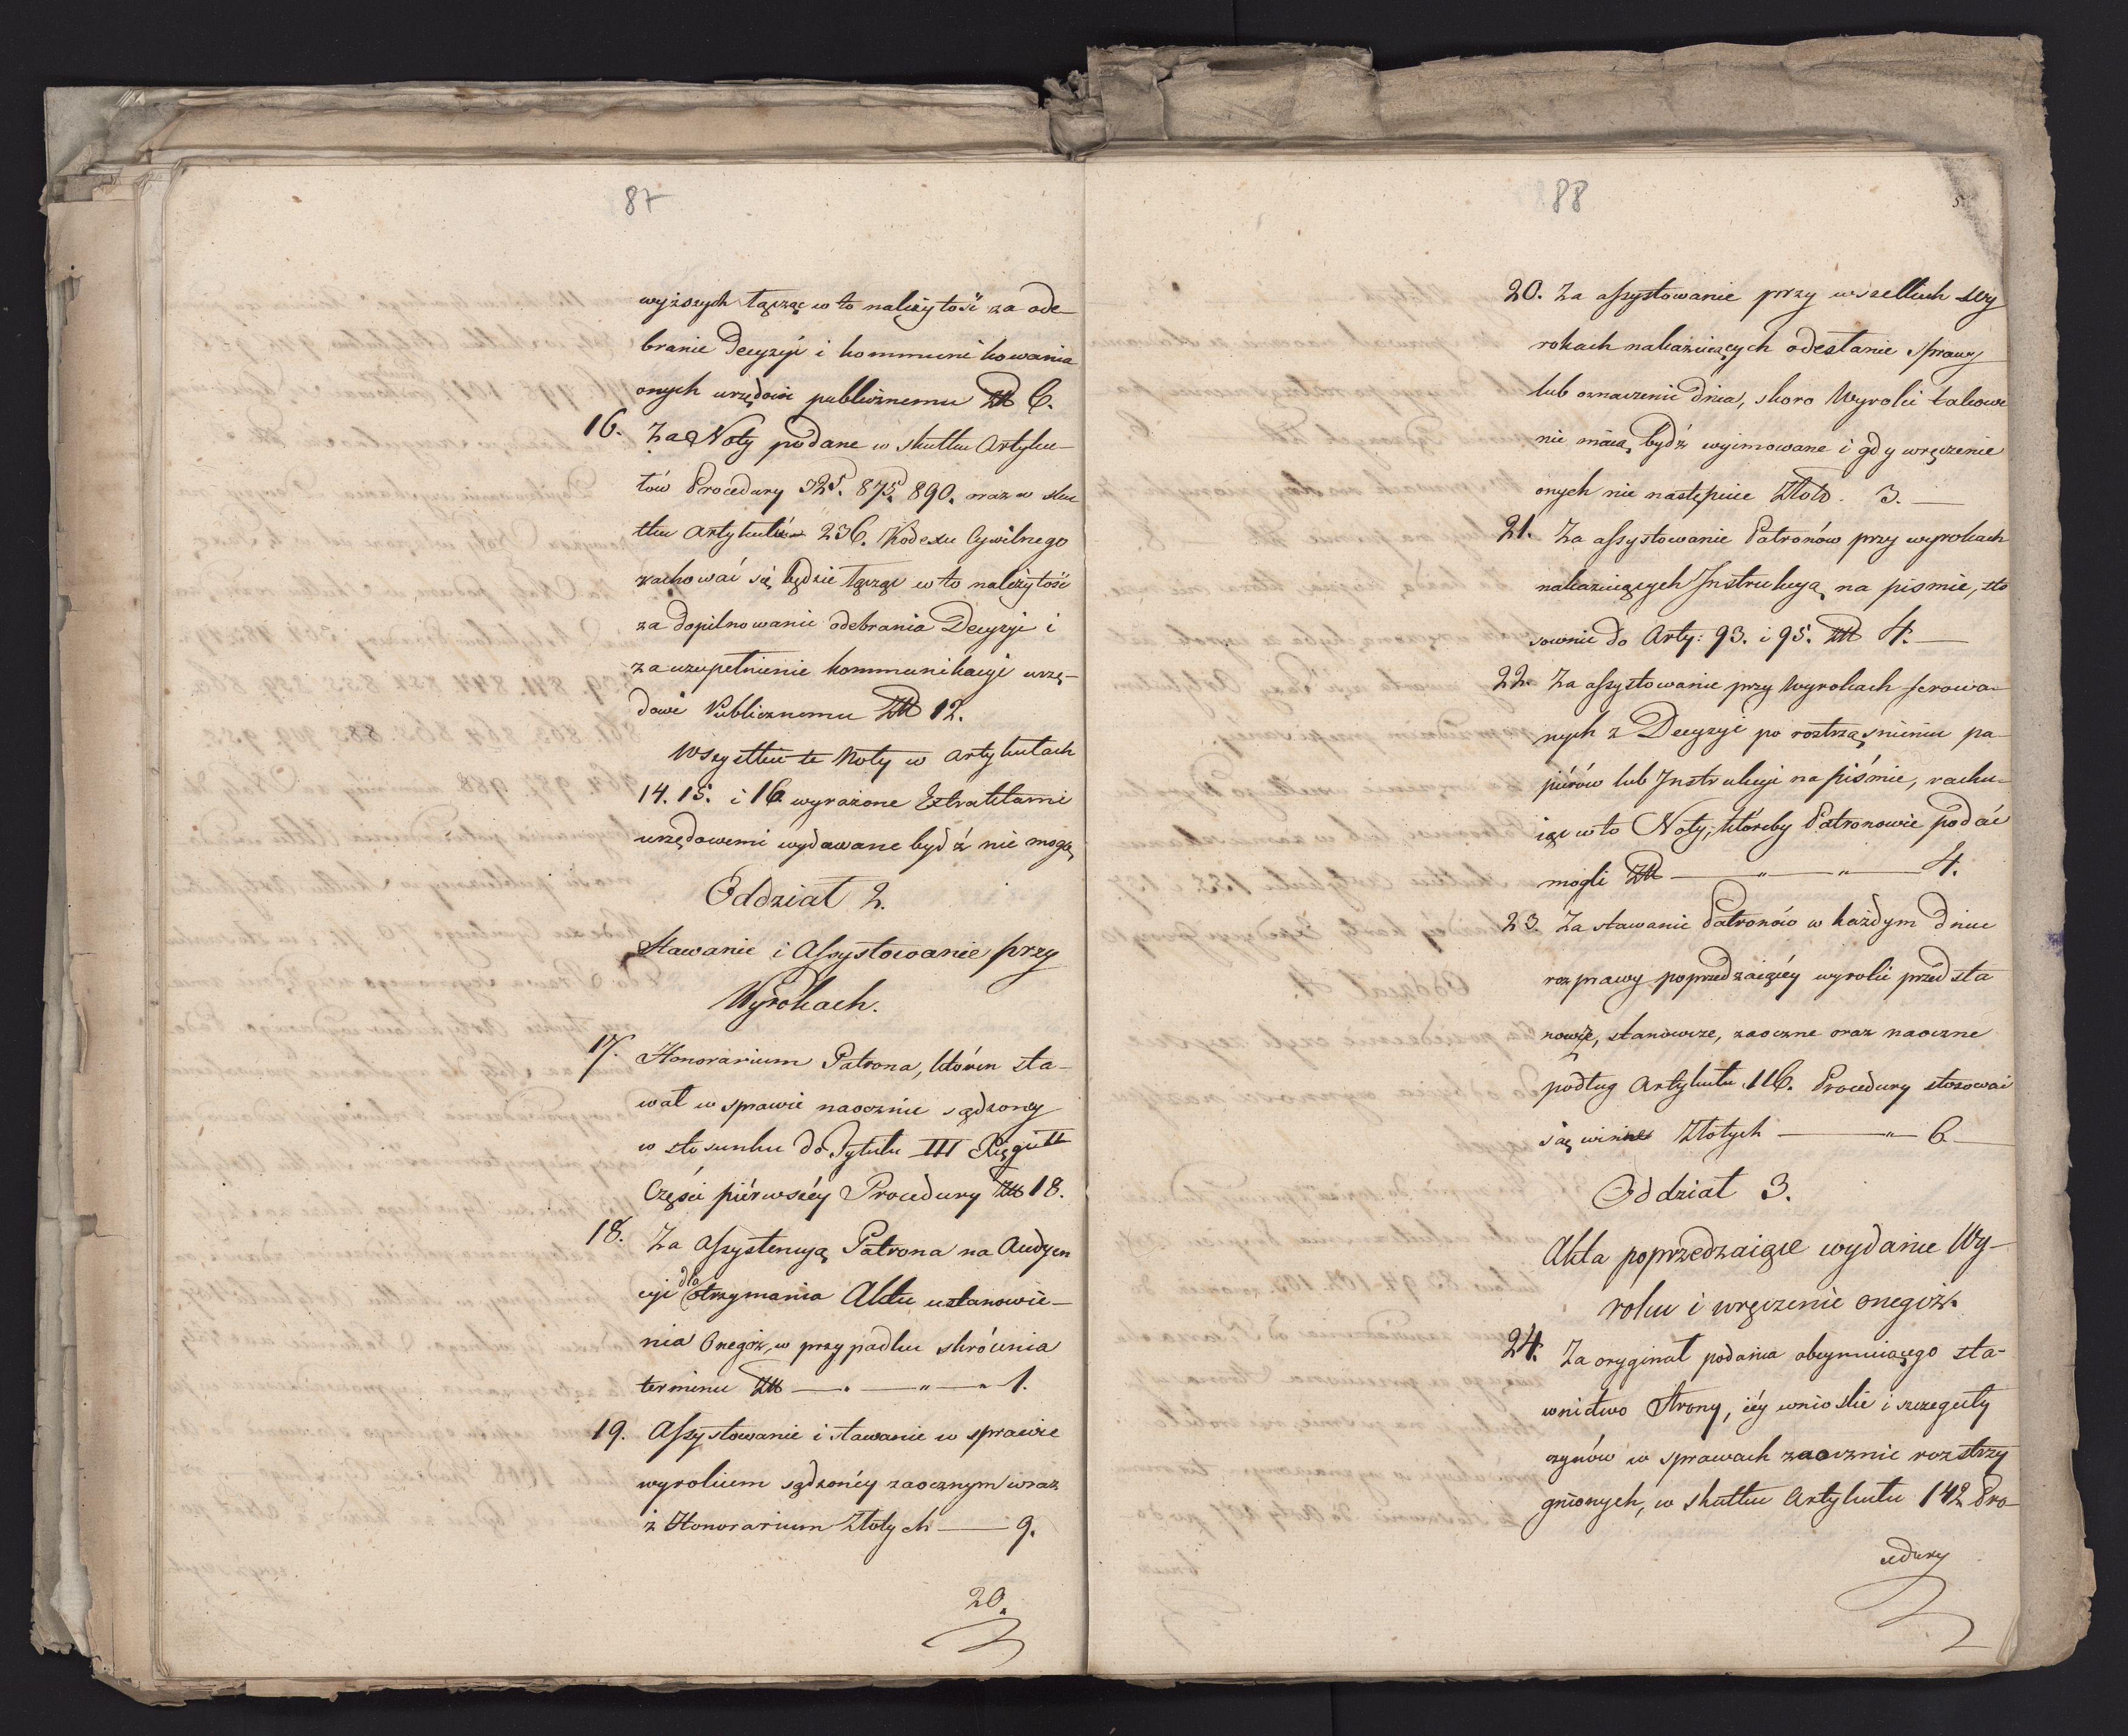 87
wyższych łącząc w to należytość za ode-
branie Decyzyi i kommunikowania
onych urzędowi publicznemu Zł 6.
16. Za Noty podane w skutku Artyku-
łów Procedury 325. 875. 890. oraz w sku
tku Artykułu 236. Kodexu Cywilnego
zachować się będzie łącząc w to należytość
za dopilnowanie odebrania Decyzyi i
za uzupełnienie kommunikacyi urzę-
dowi Publicznemu Zł 12.
Wszystkie te Noty w Artykułach
14. 15. i 16 wyrażone Extraktami
urzędowemi wydawane bydź nie mogą
Oddział 2.
Stawanie i Assystowanie przy
Wyrokach.
17. Honorarium Patrona, który sta-
wał w sprawie naocznie sądzony
w stosunku do Tytułu III Księgi II
Części piérwszéy Procedury Zł 18.
18. Za Assystencyą Patrona na Audyen
cyi dla otrzymania Aktu ustanowie-
nia Onegoż, w przypadku skrócenia
terminu Zł — " — " — " 1.
19. Assystowanie i stawanie w sprawie
wyrokiem sądzonéy zaocznym wraz
z Honorarium Złotych — 9.
20.
88
20. Za assystowanie przy wszelkich Wy
rokach nakazuiących odesłanie sprawy
lub oznaczenie Dnia, skoro Wyroki takowe
nie maią bydź wyimowane i gdy wręczenie
onych nie nastąpiie Złoto. 3. —
21. Za assystowanie Patronów przy wyrokach
nakazuiących Instrukcyą na piśmie, sto
sownie do Arty: 93. i 95. Zł 4. —
22. Za assystowanie przy Wyrokach ferowa-
nych z Decyzyi po roztrząśnieniu pa-
piérów lub Instrukcyi na piśmie, rachu-
iąc w to Noty, któreby Patronowie podać
mogli Zł — " — " — 4.
23. Za stawanie Patronów w każdym Dniu
rozprawy poprzedzaiącéy wyroki przedsta
nowcze, stanowcze, zaoczne oraz naoczne
podług Artykułu 116. Procedury stosować
się winne Złotych — " — 6 —
Oddział 3.
Akta poprzedzaiące wydanie Wy-
roku i wręczenie onegoż.
24. Za oryginał podania obeymuiącego sta-
wnictwo Strony, iéy wnioski i szczeguły
czynów w sprawach zaocznie rozstrzy
gnionych, w skutku Artykułu 142 Pro-
cedury